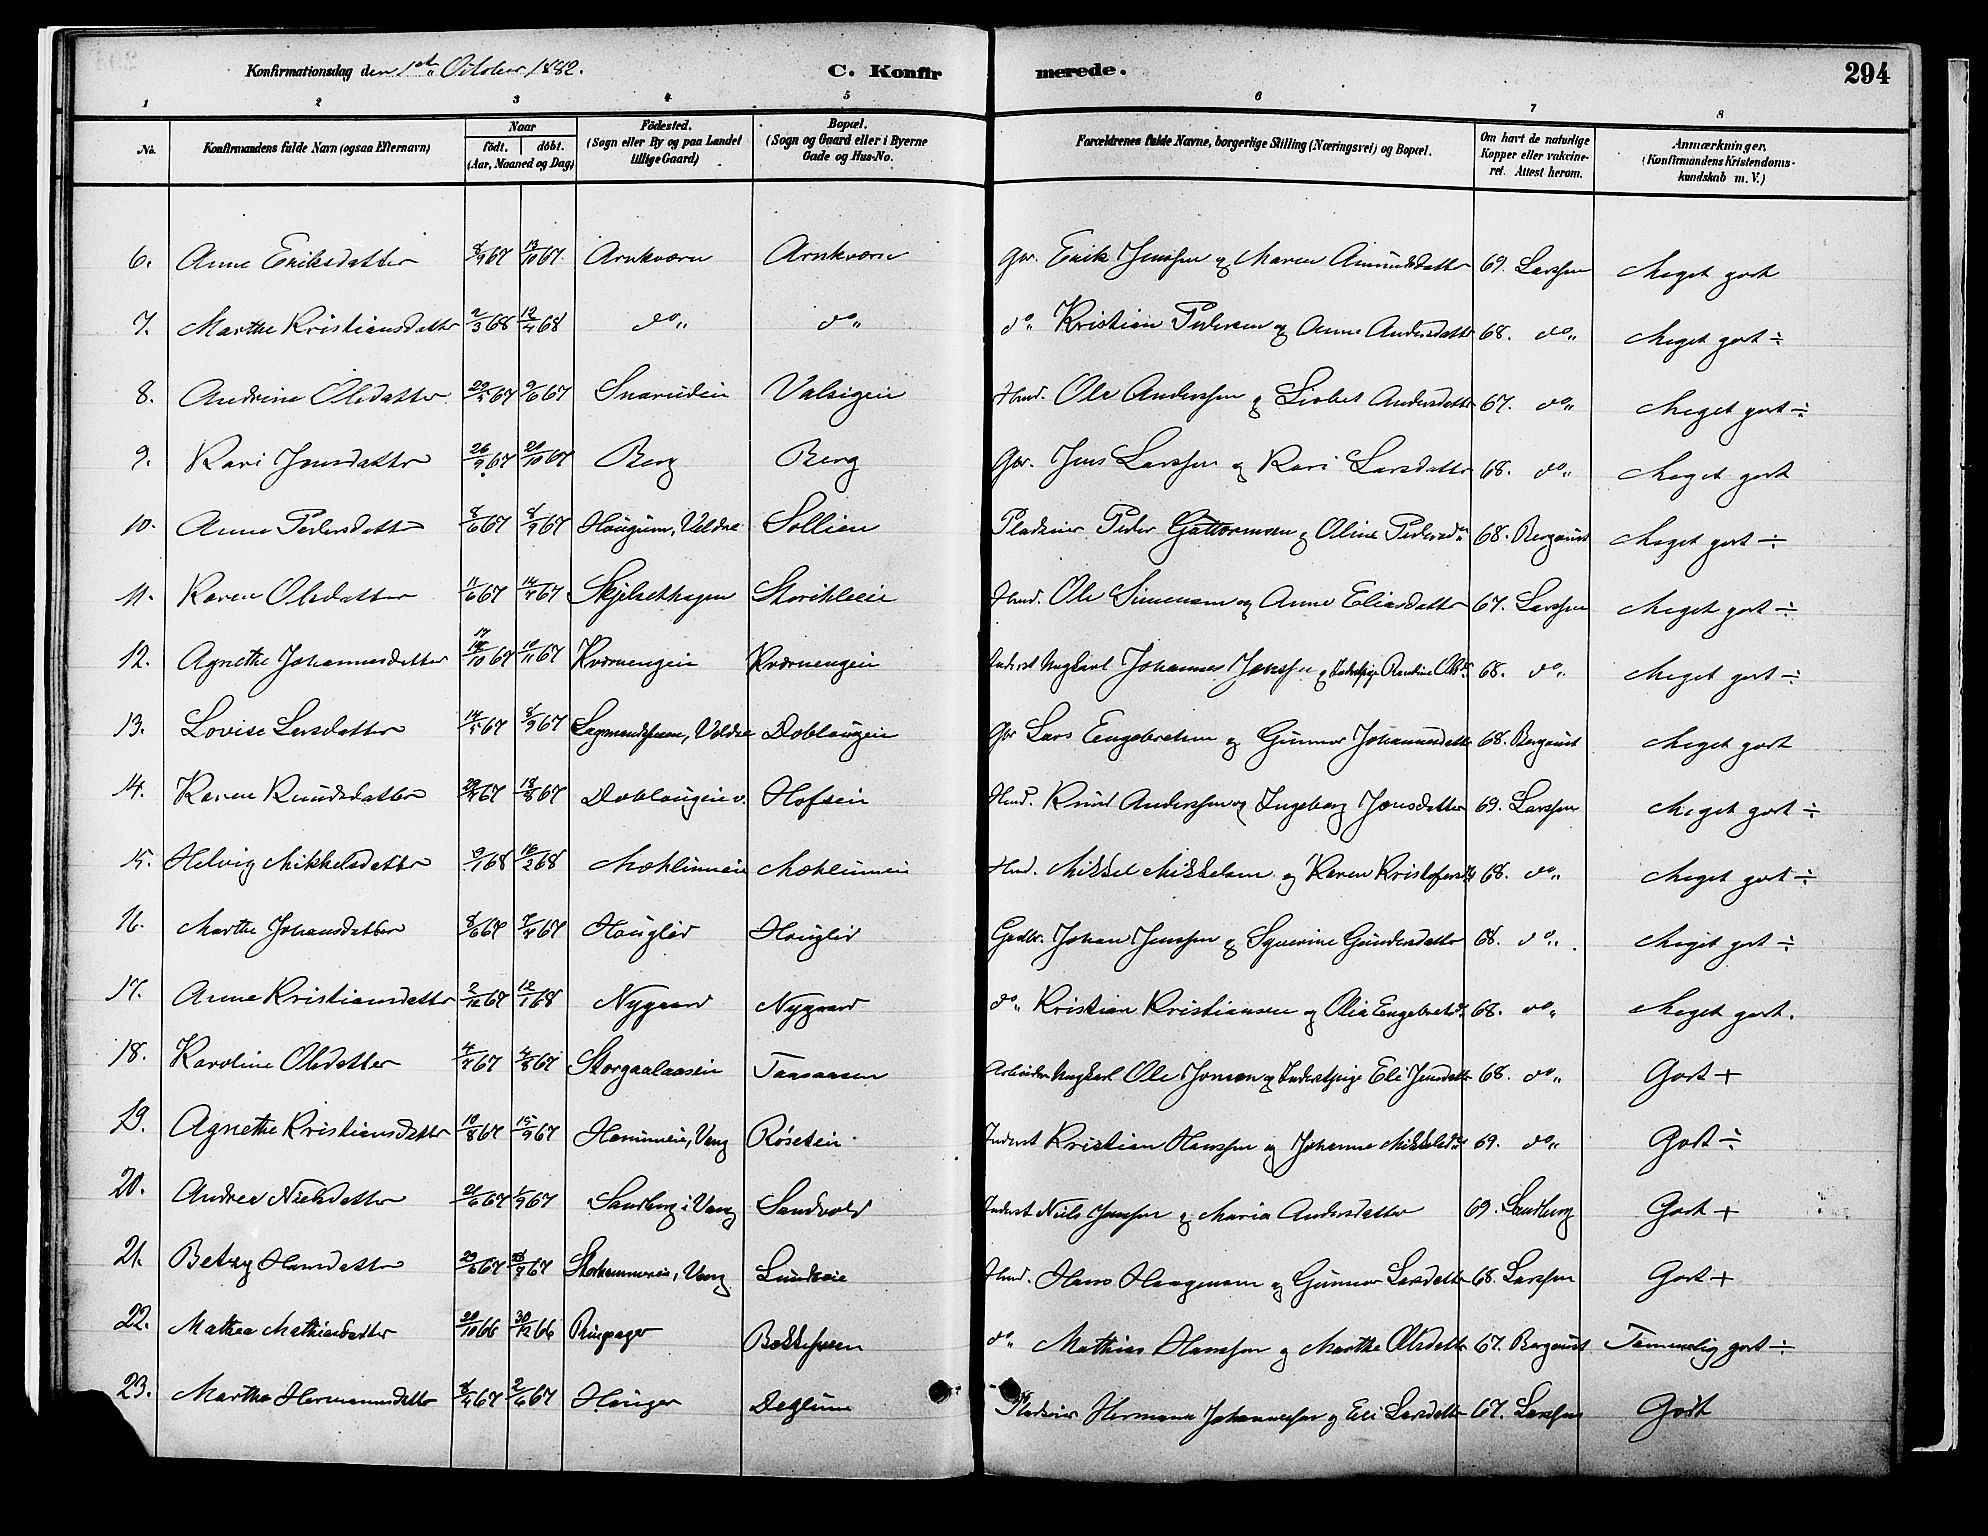 Konfirmationsdag den 1ste October 1882.
C. Konfirmerede.
294
1 2 3 4 5 6 7 8
No. Konfirmandens fulde Navn (ogsaa Efternavn) Naar födt. döbt. (Aar, Maaned og Dag) Födested. (Sogn eller By og paa Landet tillige Gaard) Bopæl. (Sogn og Gaard eller i Byerne Gade og Hus-No. Forældrenes fulde Navne, borgerlige Stilling (Næringsvei) og Bopæl. Om havt de naturlige Kopper eller vakcineret. Attest herom. Anmærkninger, (Konfirmandens Kristendomskundskab m. V.)
6. Anne Eriksdatter 8/9 67 13/10 67. Arnkværn Arnkværn Gbr. Erik Jenssen og Maren Amundsdatter 69. Larssen Meget godt
7. Marthe Kristiansdatter 2/3 68 12/4 68 do" do" do" Kristian Pedersen og Anne Andersdatter 68. do" Meget godt ÷
8. Andrine Olsdatter 29/5 67 9/6 67 Snarudein Valsigeie Hmd. Ole Anderssen og Lisbet Andersdatter 67. do" Meget godt ÷
9. Kari Jensdatter 26/9 67 21/10 67 Berg Berg Gbr. Jens Larssen og Kari Larsdatter 68. do" Meget godt
10. Anne Pedersdatter 8/6 67 8/9 67 Haugum, Veldre Sollien Pladseier Peder Guttormsen og Oline Pedersd. 68. Bergquist Meget godt ÷
11. Karen Olsdatter 11/6 67 14/7 67 Skjelsethagen Storihleeie Hmd. Ole Simensen og Anne Eliasdatter 67. Larssen Meget godt ÷
12. Agnethe Johannesdatter 17/10 67 10/11 67 Kværnengein Kværnengein Inderst Ungkarl Johannes Jenssen og Inderstpige Randine Olsd. 68. do" Meget godt ÷
13. Lovise Larsdatter 14/5 67 8/9 67 Veldre Doblougeie Gbr Lars Engebretsen og Gunnor Johannesdatter 68. Bergquist Meget godt
14. Karen Knudsdatter 29/7 67 18/8 67 Doblougeie v. Hofseie Hmd. Knud Anderssen og Ingeborg Jensdatter 69. Larssen Meget godt ÷
15. Helvig Mikkelsdatter 9/1 68 16/2 68 Mæhlumeie Mæhlumeie Hmd. Mikkel Mikkelsen og Karen Kristofersd. 68. do" Meget godt ÷
16. Marthe Johansdatter 8/6 67 7/7 67 Houglid Houglid Gaardbr. Johan Jenssen og Syverine Gundersdatter 68. do" Meget godt ÷
17. Anne Kristiansdatter 2/12 67 12/1 68 Nygaard Nygaard do" Kristian Kristiansen og Olia Engebretsd. 68. do" Meget godt.
18. Karoline Olsdatter 4/7 67 4/8 67 Storgaalaasein Taasaasen Arbeider Ungkarl Ole Jensen og Inderstpige Eli Jensdatter 68. do" Godt +
19. Agnethe Kristiansdatter 10/8 67 15/9 67 Hommeie, Vang Røseteie Inderst Kristian Hanssen og Johanne Mikkelsd. 69. do" Godt ÷
20. Andrea Nielsdatter 21/6 67 1/9 67 Sandberg i Vang Sandvold Inderst Niels Jenssen og Maria Andersdatter 69. Sandberg Godt +
21. Betzy Hansdatter 29/6 67 28/9 67 Storhammereie, Vang Lundseie Hmd. Hans Haagensen og Gunnor Larsdatter 68. Larssen Godt +
22. Mathea Mathiasdatter 20/10 66 30/12 66 Ringsager Bækkesveen do" Mathias Hanssen og Marthe Olsdatter 67. Bergquist Temmelig godt ÷
23. Marthe Hermannsdatter 8/4 67 2/6 67 Houger Deglum Pladseier Hermann Johannessen og Eli Larsdatter 67. Larssen Godt